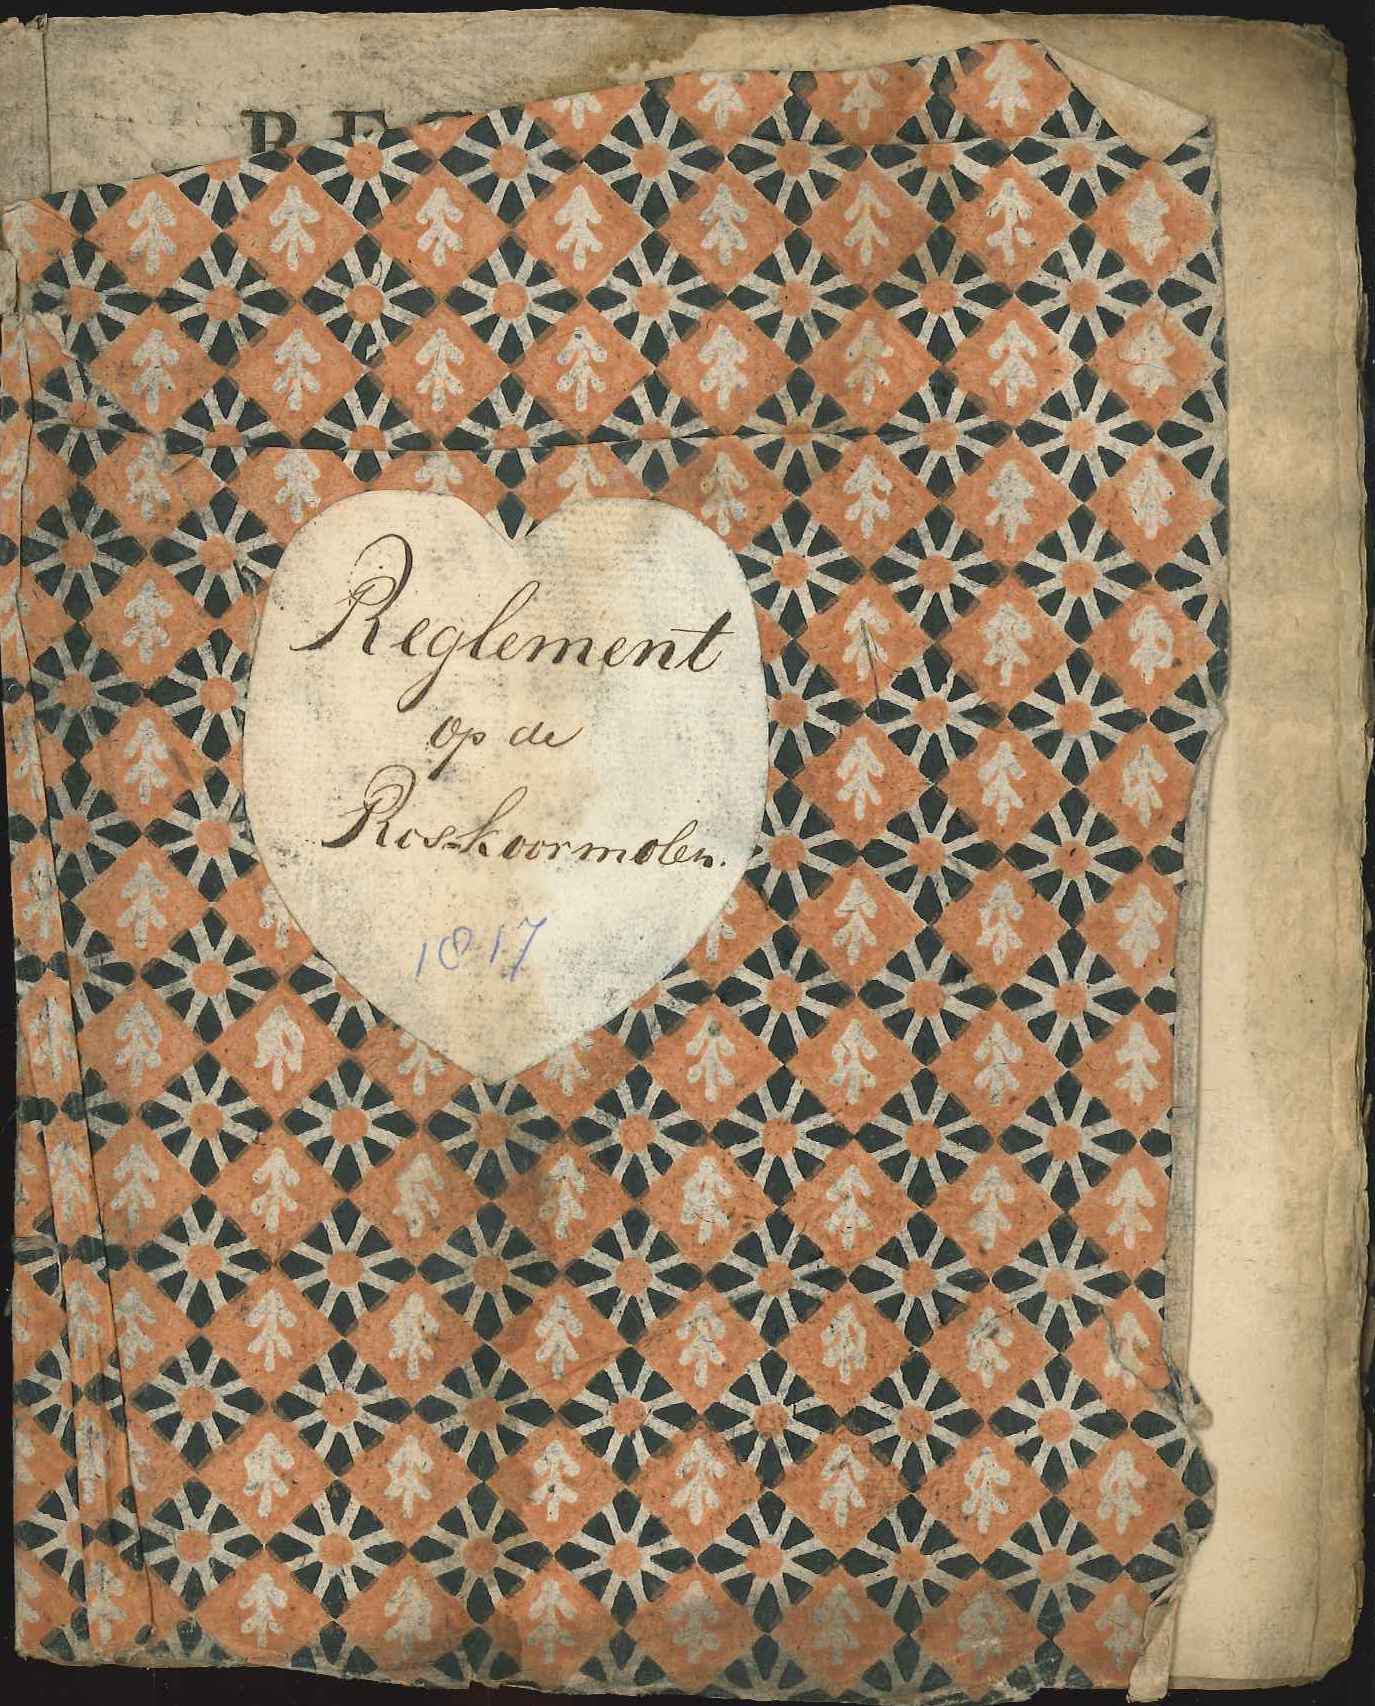 REG
Reglement
op de
Ros-koormolen.
1817